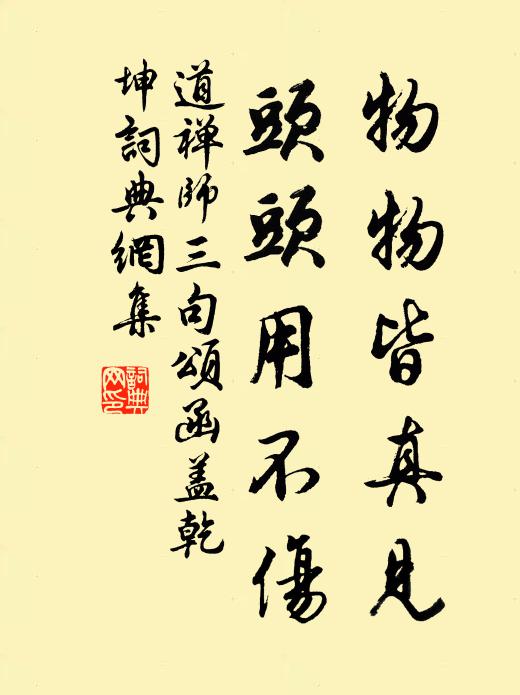 物物皆真見
頭頭用不傷
道禅師三句頌函蓋乾
坤詞典網集
詞典
网印